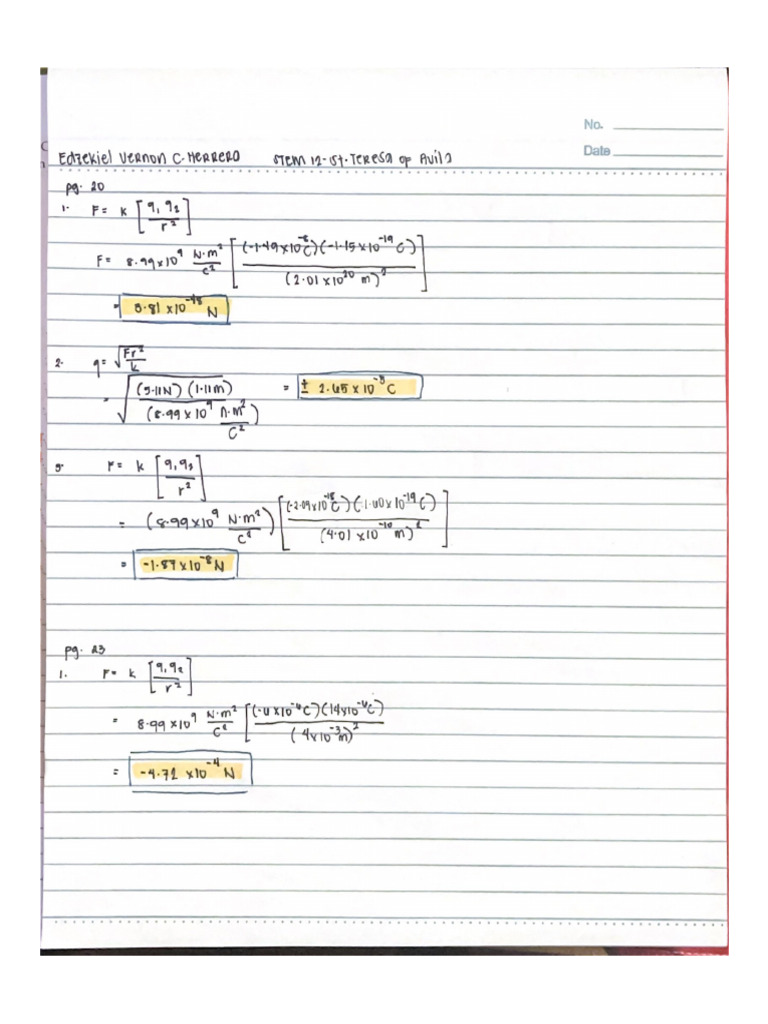 No.
Date
Edzekiel Vernon C. Herrero STEM 12-St. Teresa of Avila
pg. 20
1. F = k [q₁ q₂ / r²]
F = 8.99 x 10⁹ N·m²/C² [(-1.49 x 10⁻⁸ C)(-1.15 x 10⁻¹⁹ C) / (2.01 x 10²⁰ m)²]
= 3.81 x 10⁻⁴⁸ N
2. q = √(Fr²/k)
= √((5.11N) (1.11m) / (8.99 x 10⁹ N·m²/C²)) = ± 2.65 x 10⁻⁵ C
3. F = k [q₁ q₂ / r²]
= (8.99 x 10⁹ N·m²/C²) [(-2.09 x 10⁻¹⁸ C)(1.60 x 10⁻¹⁹ C) / (4.01 x 10⁻¹⁰ m)²]
= -1.87 x 10⁻⁸ N
pg. 23
1. F = k [q₁ q₂ / r²]
= 8.99 x 10⁹ N·m²/C² [(-6 x 10⁻⁶ C)(14 x 10⁻⁶ C) / (4 x 10⁻³ m)²]
= -4.72 x 10⁻⁴ N